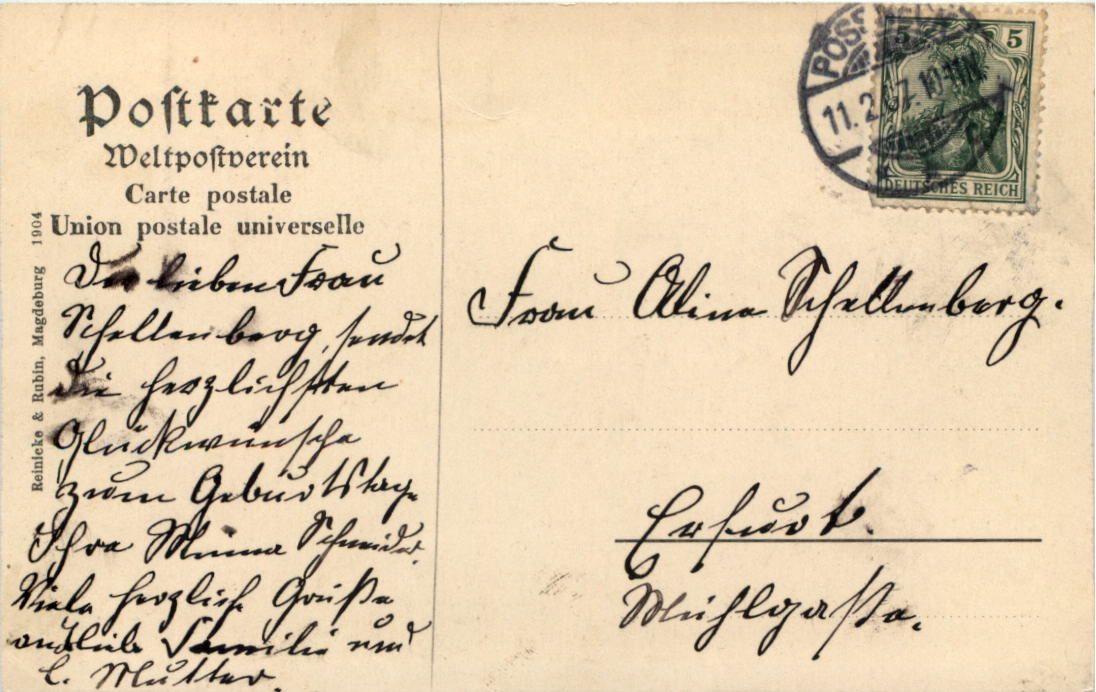 Postkarte
Weltpostverein
Carte postale
Union postale universelle
Reinicke & Rubin, Magdeburg 1904
Der lieben Frau
Schellenberg, sendet
die herzlichsten
Glückwünsche
zum Geburtstage
Ihre Minna Schneider.
Viele herzliche Grüße
Familie und
l. Mutter.
5 5
DEUTSCHES REICH
11.2. 7. 10-11V
Frau Aline Schellenberg.
Erfurt.
Mühlgasse.